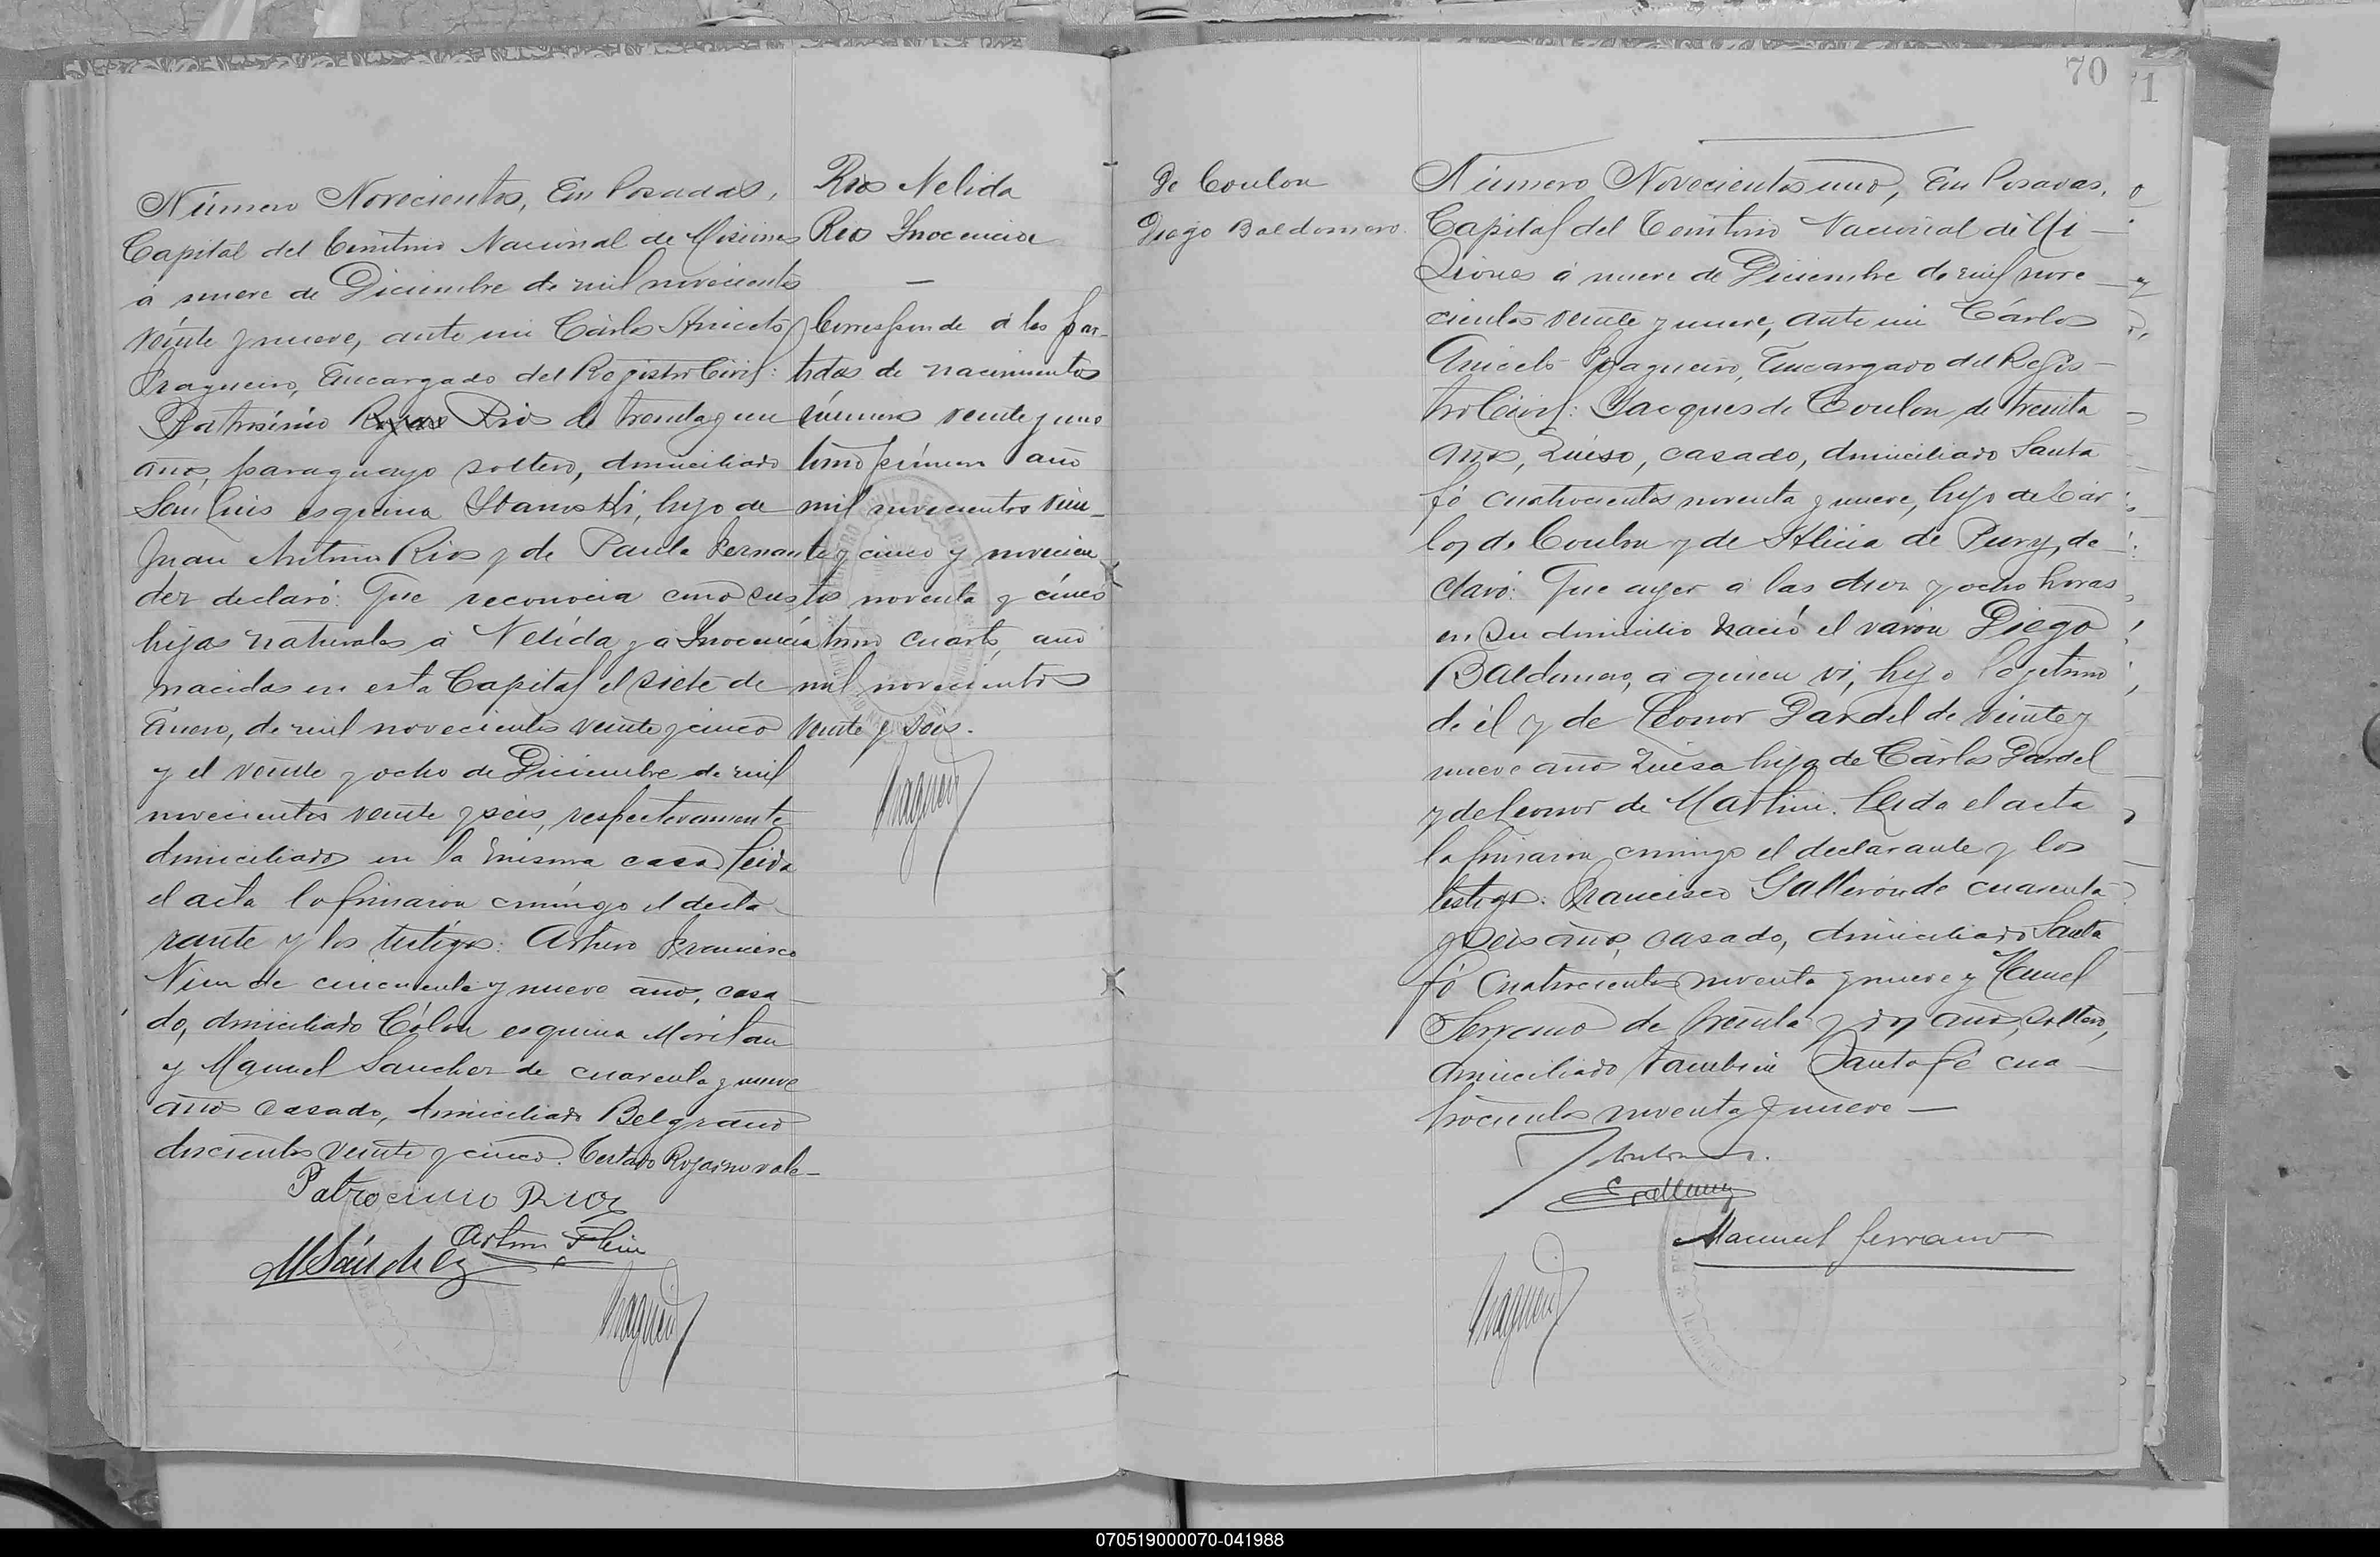 Número Novecientos, En Posadas,
Capital del Territorio Nacional de Misiones
á nueve de Diciembre de mil novecientos
veinte y nueve, ante mi Cárlos Aniceto
Fragueiro, Encargado del Registro Civil:
Patrosinio Rojas Rios de treinta y un
años, paraguayo soltero, domiciliado
San Luis esquina, hijo de
Juan Antonio Rios y de Paula Fernan
dez declaró: Que reconocia como sus
hijas naturales á Nelida y a Inocencia
nacidas en esta Capital el siete de
Enero, de mil novecientos veinte y cinco
y el veinte y ocho de Diciembre de mil
novecientos veinte y seis, respectivamente
domiciliados en la misma casa. Leida
el acta la firmaron conmigo el decla
rante y los testigos: Arturo Francisco
de cincuenta y nueve años, casa
do, domiciliado Cólon esquina
y Manuel Sanchez de cuarenta y nueve
años casado, domiciliado Belgrano
doscientos veinte y cinco. Testado Rojas no vale
Patrocinio Rios
Artur
MSánchez
Rios Nelida
Rios Inocencia
—
Corresponde á las par-
tidas de nacimientos
número veinte y uno
tomo primero año
mil novecientos vein-
te y cinco y novecien
tos noventa y cinco
tomo cuarto, año
mil novecientos
veinte y seis.
70
71
De Coulon
Diego Baldomero.
Número Novecientos uno, En Posadas,
Capital del Territorio Nacional de Mi-
siones á nueve de Diciembre de mil nove-
cientos veinte y nueve, ante mi Cárlos
Aniceto Fragueiro, Encargado del Regis-
tro Civil: Jacques de Coulon de treinta
años, Suiso, casado, domiciliado Santa
fé cuatrocientos noventa y nueve, hijo de Cár
los de Coulon y de Alicia de Pury, de-
claró: Que ayer á las diez y ocho horas
en su domicilio nació el varón Diego
Baldomero, a quien vi, hijo legitimo
de él y de Leonor Dardel de veinte y
nueve años Suisa hija de Cárlos Dardel
y de Leonor de Martini. Leida el acta
la firmaron conmigo el declarante y los
testigos: Francisco Galleron de cuarenta
y seis años, casado, domiciliado Santa
fé Cuatrocientos noventa y nueve y Manuel
Serrano de treinta y años, soltero,
domiciliado tambien Santa fé cua-
trocientos noventa y nueve —
Manuel Serrano
070519000070-041988